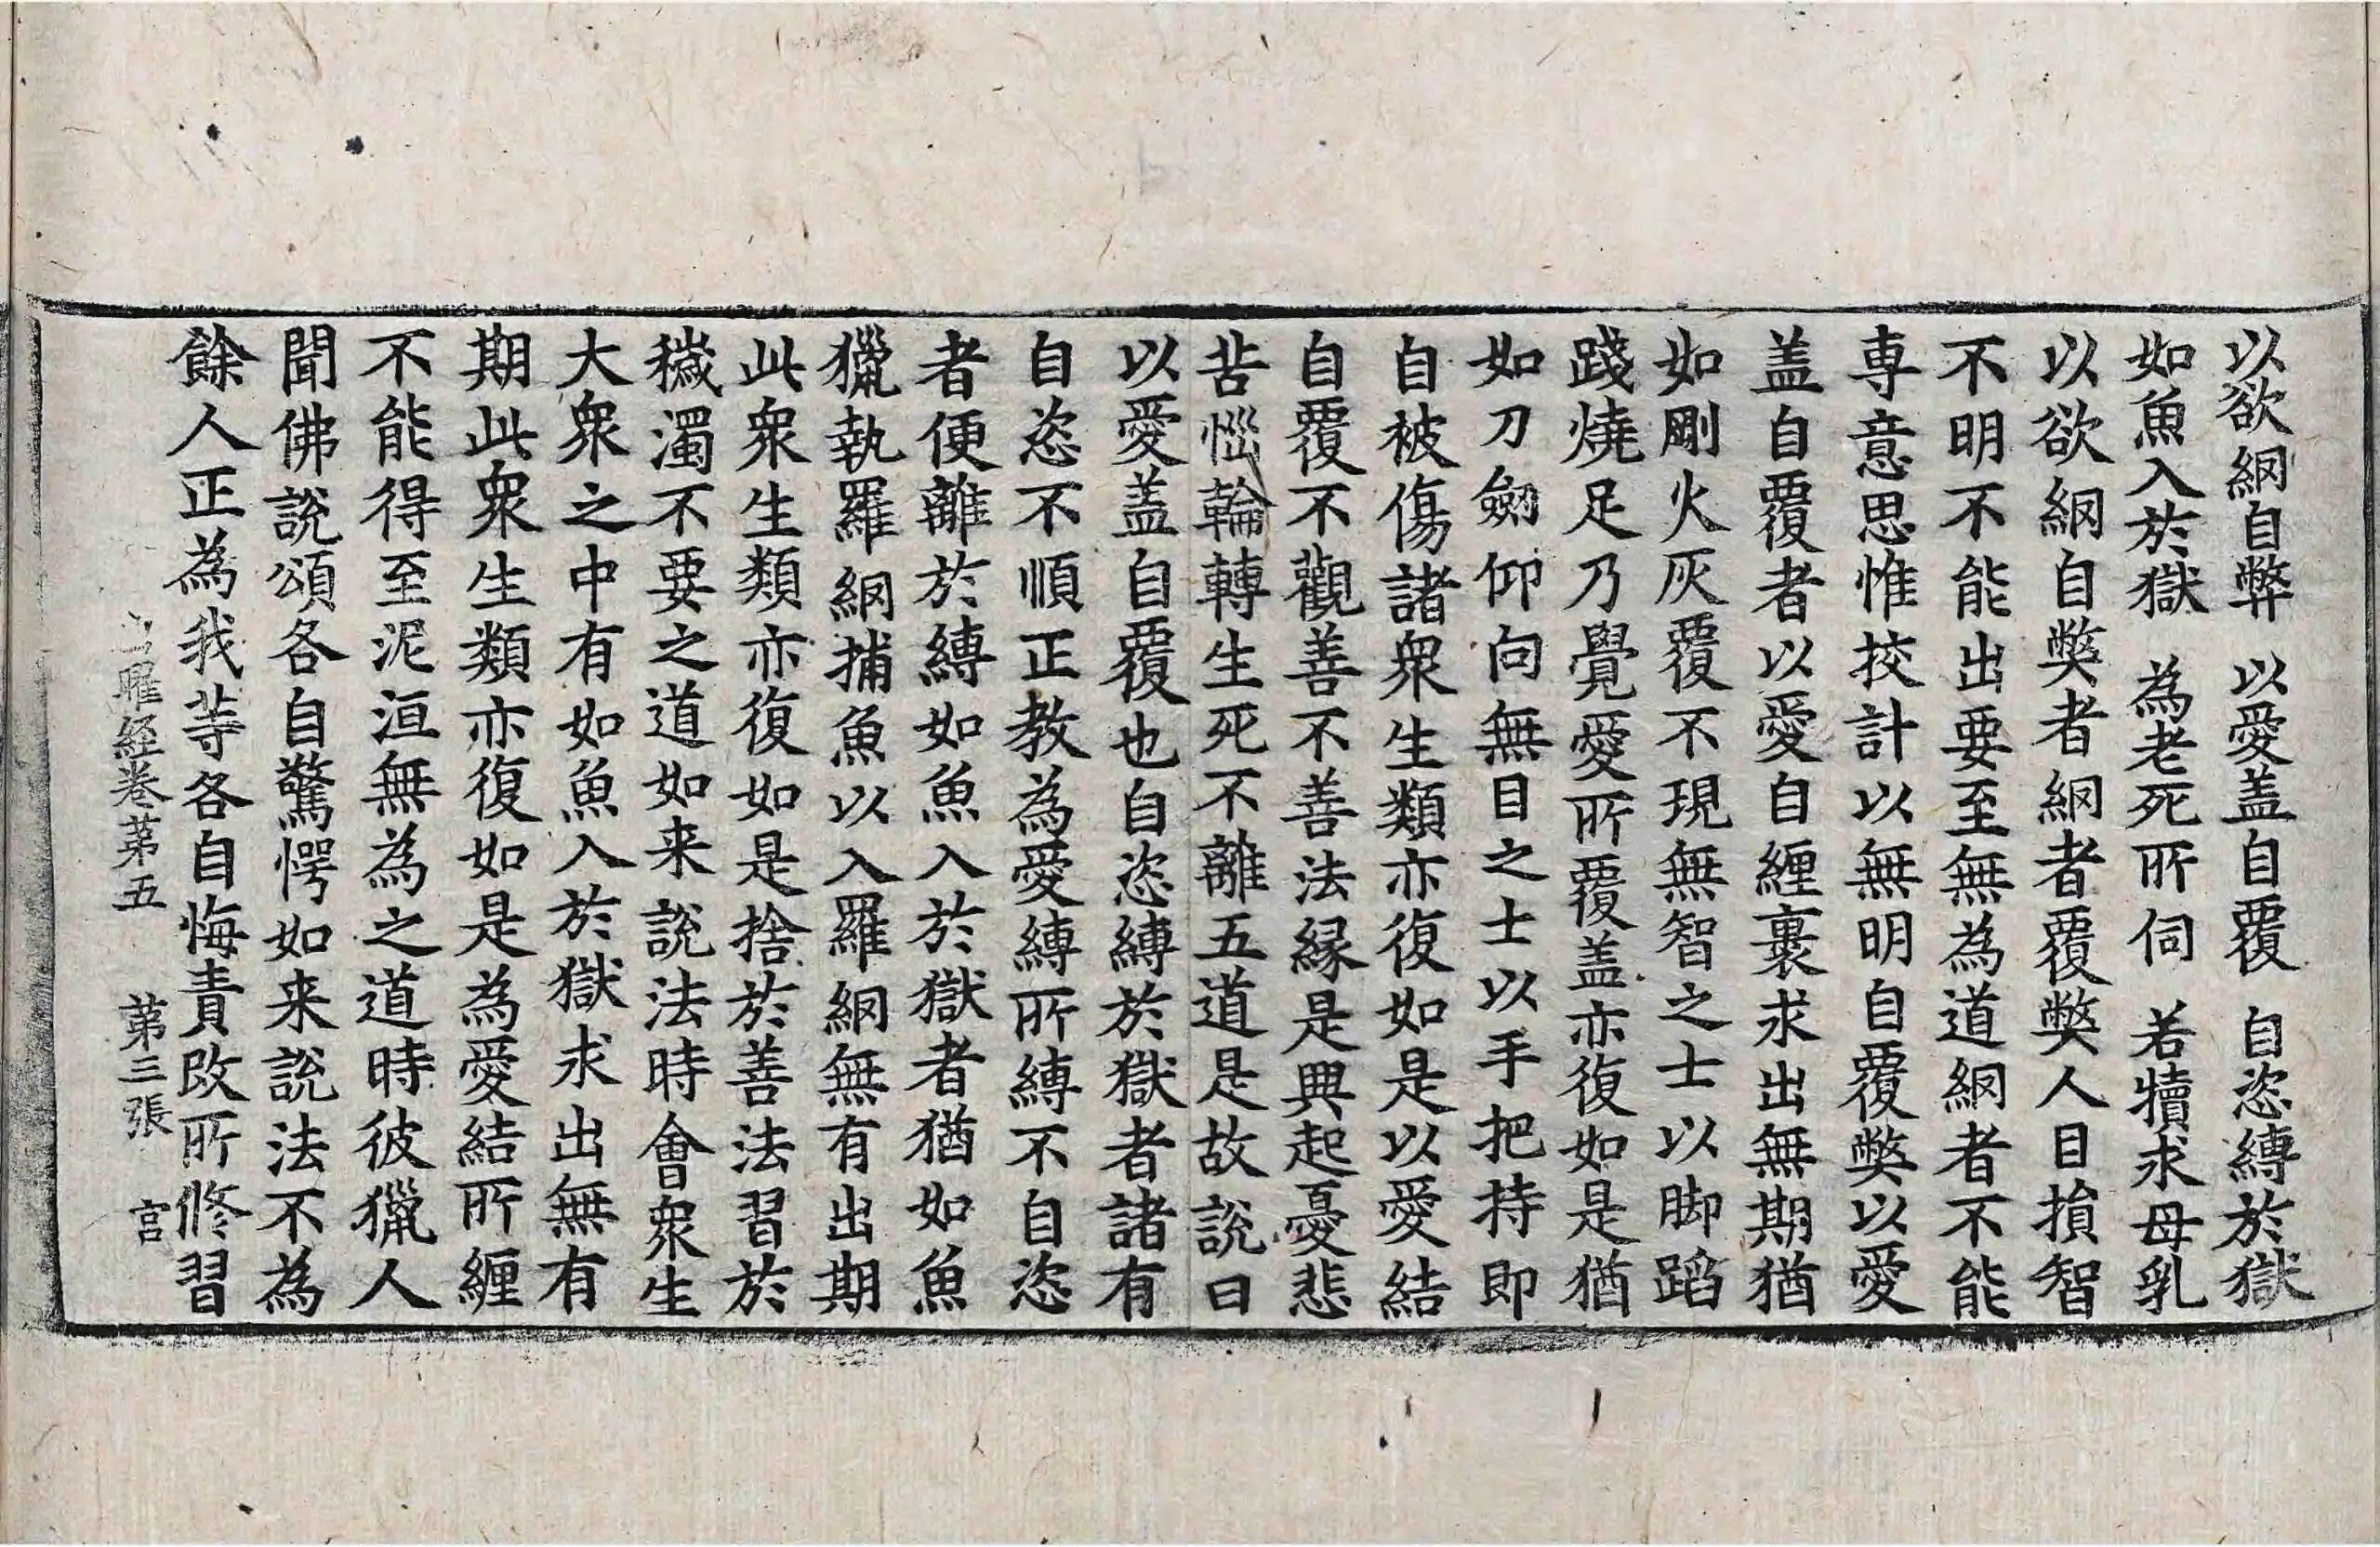 以欲網自弊　以愛盖自覆　自恣縛於獄
如魚入於獄　為老死所伺　若犢求母乳
以欲網自弊者網者覆弊人目損智
不明不能出要至無為道網者不能
専意思惟挍計以無明自覆弊以愛
盖自覆者以愛自纒裹求出無期猶
如剛火灰覆不現無智之士以脚蹈
踐燒足乃覺愛所覆盖亦復如是猶
如刀劒仰向無目之士以手把持即
自被傷諸衆生類亦復如是以愛結
自覆不觀善不善法縁是興起憂悲
苦惱輪轉生死不離五道是故說曰
以愛盖自覆也自恣縛於獄者諸有
自恣不順正教為愛縛所縛不自恣
者便離於縛如魚入於獄者猶如魚
獵執羅網捕魚以入羅網無有出期
此衆生類亦復如是捨於善法習於
穢濁不要之道如来說法時會衆生
大衆之中有如魚入於獄求出無有
期此衆生類亦復如是為愛結所纒
不能得至泥洹無為之道時彼獵人
聞佛說頌各自驚愕如来說法不為
餘人正為我等各自悔責改所修習
出曜経卷第五　第三張　宫